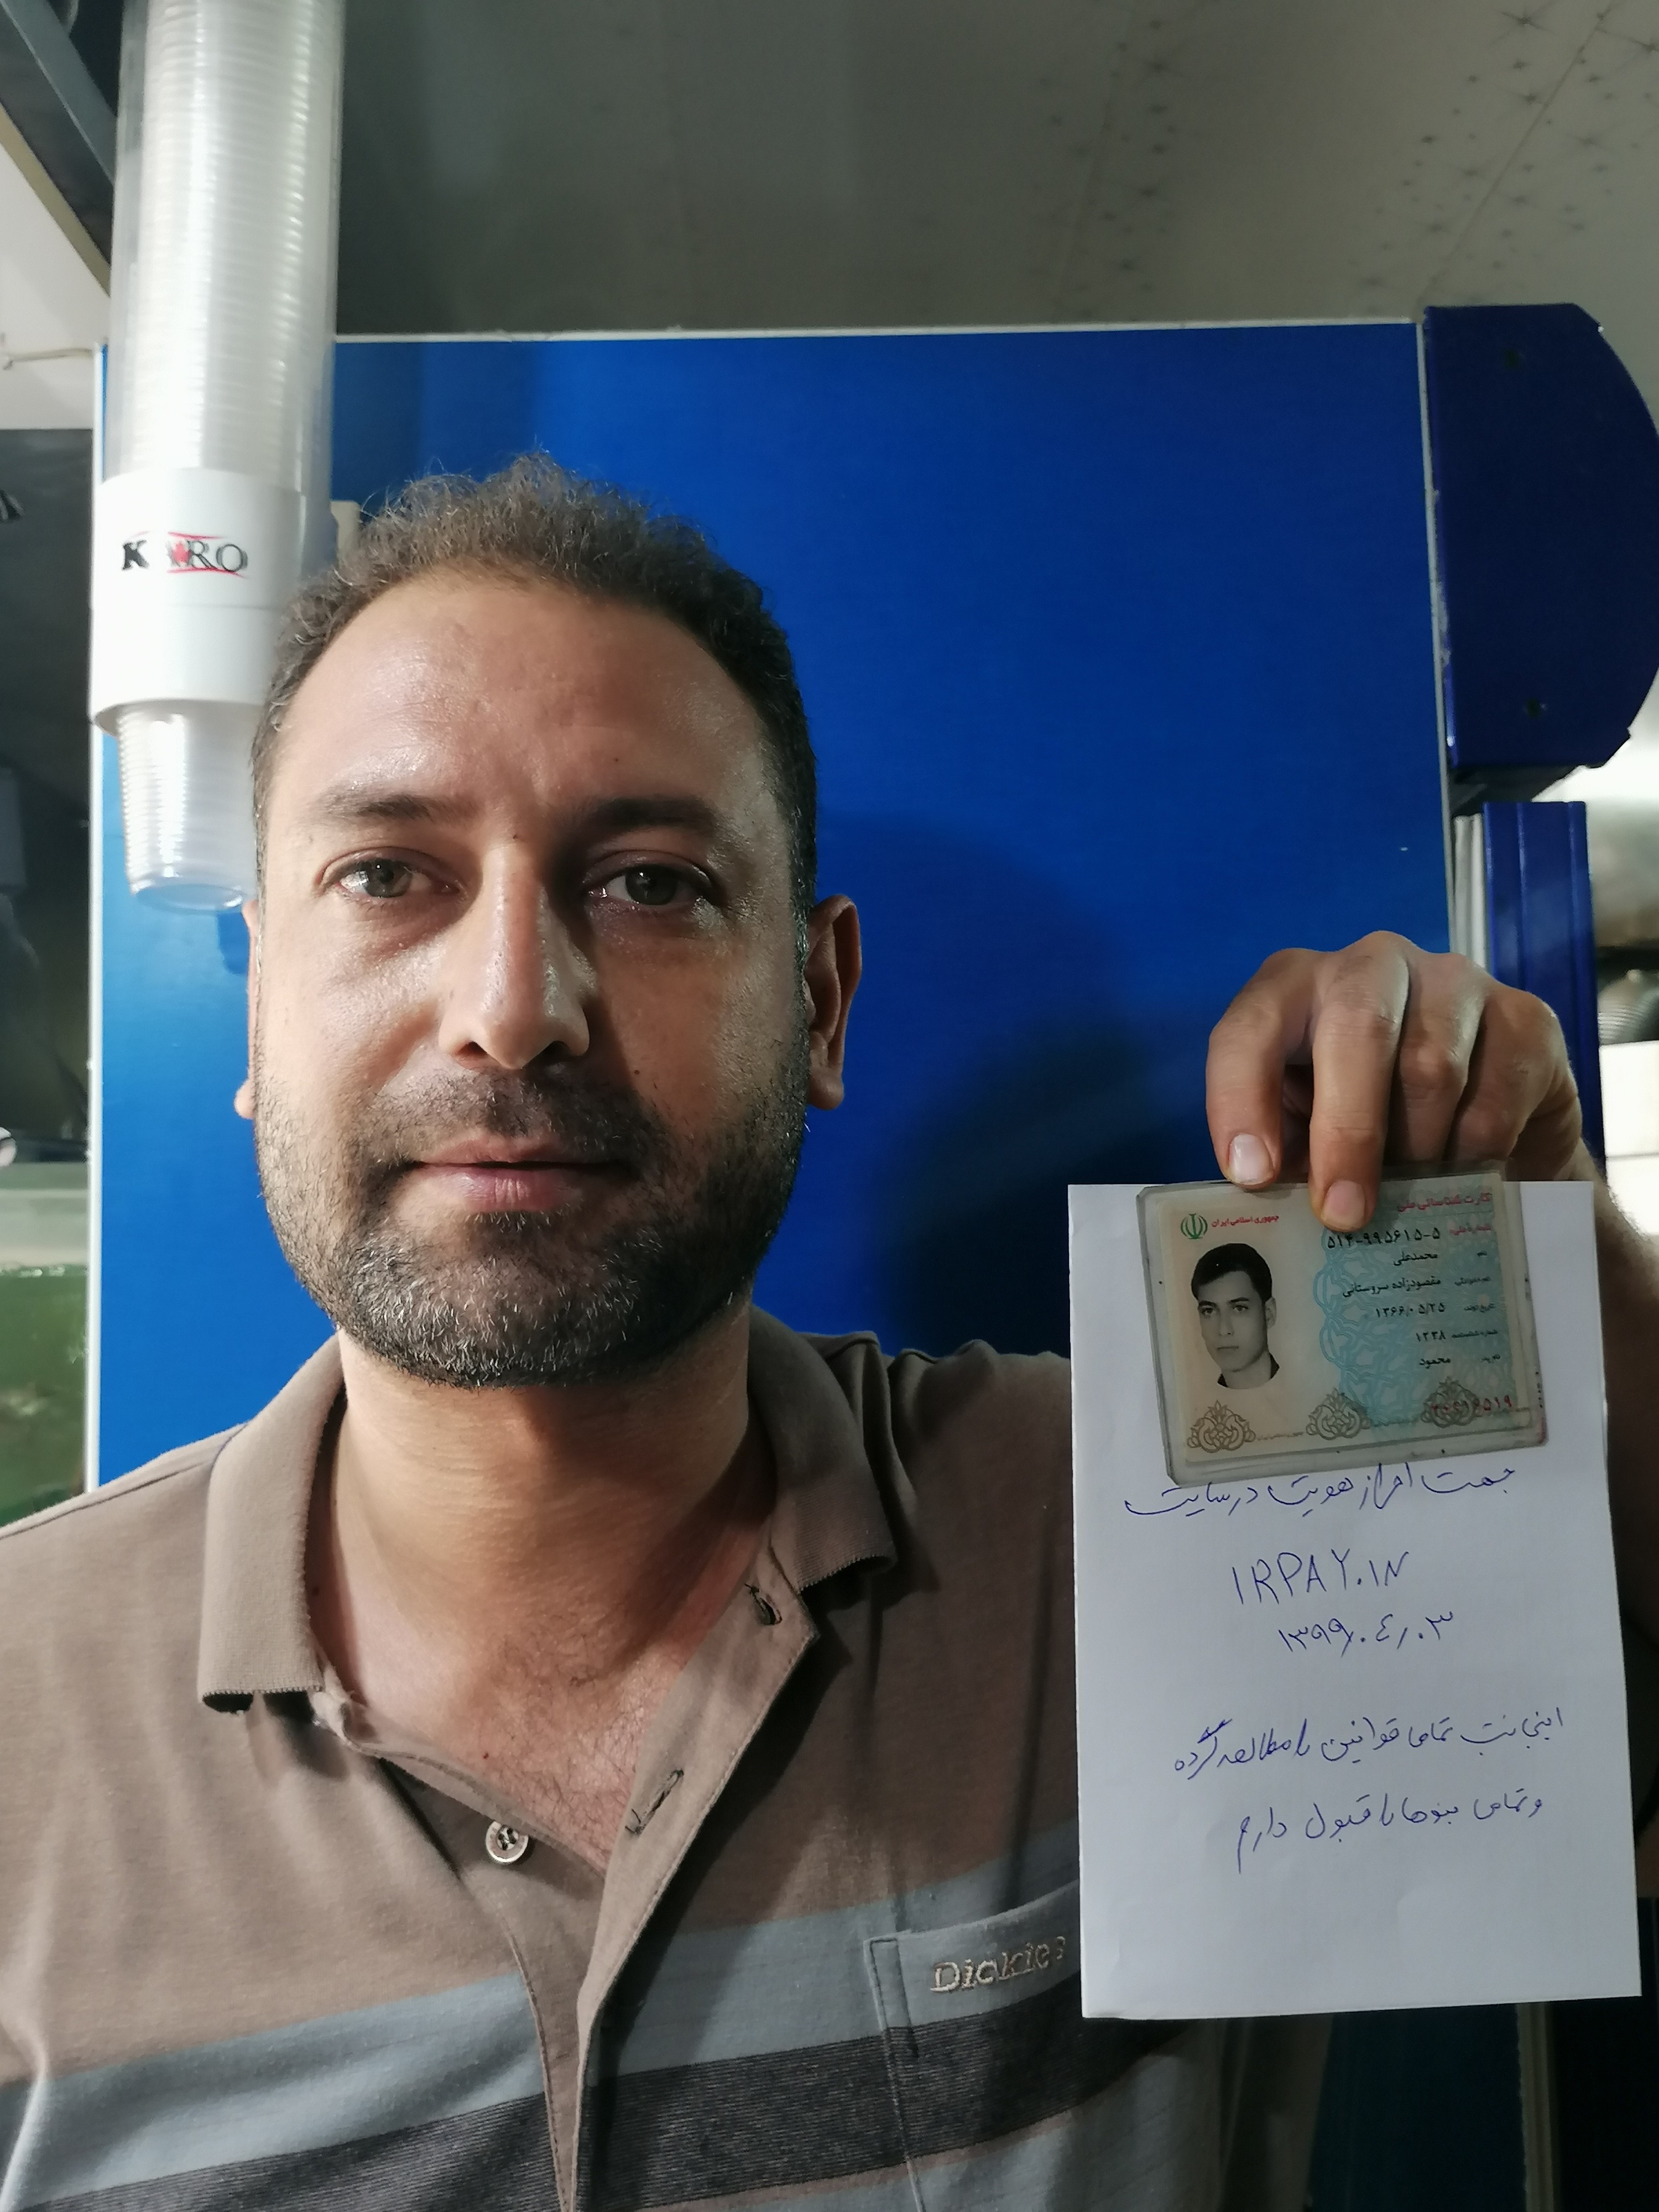 KARO
کارت شناسائی ملی
جمهوری اسلامی ایران
شماره ملی ۵۱۴-۹۹۵۶۱۵-۵
نام محمدعلی
نام خانوادگی مقصودزاده سروستانی
تاریخ تولد ۱۳۶۶/۰۵/۲۵
شماره شناسنامه ۱۳۳۸
نام پدر محمود
جهت احراز هویت در سایت
IRPAY.IN
۱۳۹۹/۰٤/۰۳
اینجانب تمامی قوانین را مطالعه کرده
و تمامی بندها را قبول دارم
Dickies